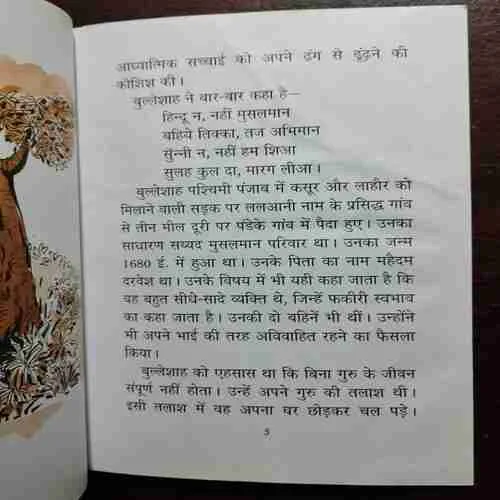 आध्यात्मिक सच्चाई को अपने ढंग से ढूंढ़ने की
कोशिश की।
बुल्लेशाह ने बार-बार कहा है—
हिन्दू न, नहीं मुसलमान
बहिये त्रिक्का, तज अभिमान
सुंन्नी न, नहीं हम शिआ
सुलह कुल दा, मारग लीआ।
बुल्लेशाह पश्चिमी पंजाब में कसूर और लाहौर को
मिलाने वाली सड़क पर ललआनी नाम के प्रसिद्ध गांव
से तीन मील दूरी पर पंडेके गांव में पैदा हुए। उनका
साधारण सय्यद मुसलमान परिवार था। उनका जन्म
1680 ई. में हुआ था। उनके पिता का नाम महैदम
दरवेश था। उनके विषय में भी यही कहा जाता है कि
वह बहुत सीधे-सादे व्यक्ति थे, जिन्हें फकीरी स्वभाव
का कहा जाता है। उनकी दो बहिनें भी थीं। उन्होंने
भी अपने भाई की तरह अविवाहित रहने का फैसला
किया।
बुल्लेशाह को एहसास था कि बिना गुरु के जीवन
संपूर्ण नहीं होता। उन्हें अपने गुरु की तलाश थी।
इसी तलाश में वह अपना घर छोड़कर चल पड़े।
5